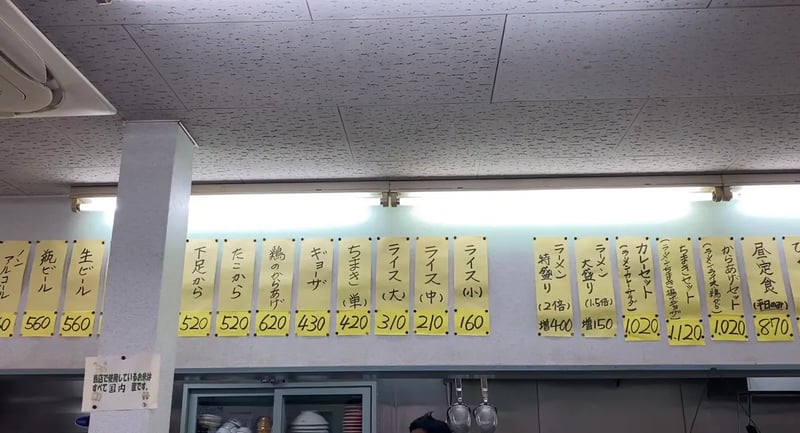 ノン
アルコール
瓶ビール
560
生ビール
560
下足から
520
たこから
520
鶏のからあげ
620
ギョーザ
430
ちまき(単)
420
ライス(大)
310
ライス(中)
210
ライス(小)
160
ラーメン
特盛り(2倍)
増400
ラーメン
大盛り(1.5倍)
増150
カレーセット
1020
ちまきセット
1120
からあげセット
1020
昼定食
(平日のみ)
870
当店で使用しているお米は
すべて国内産です。